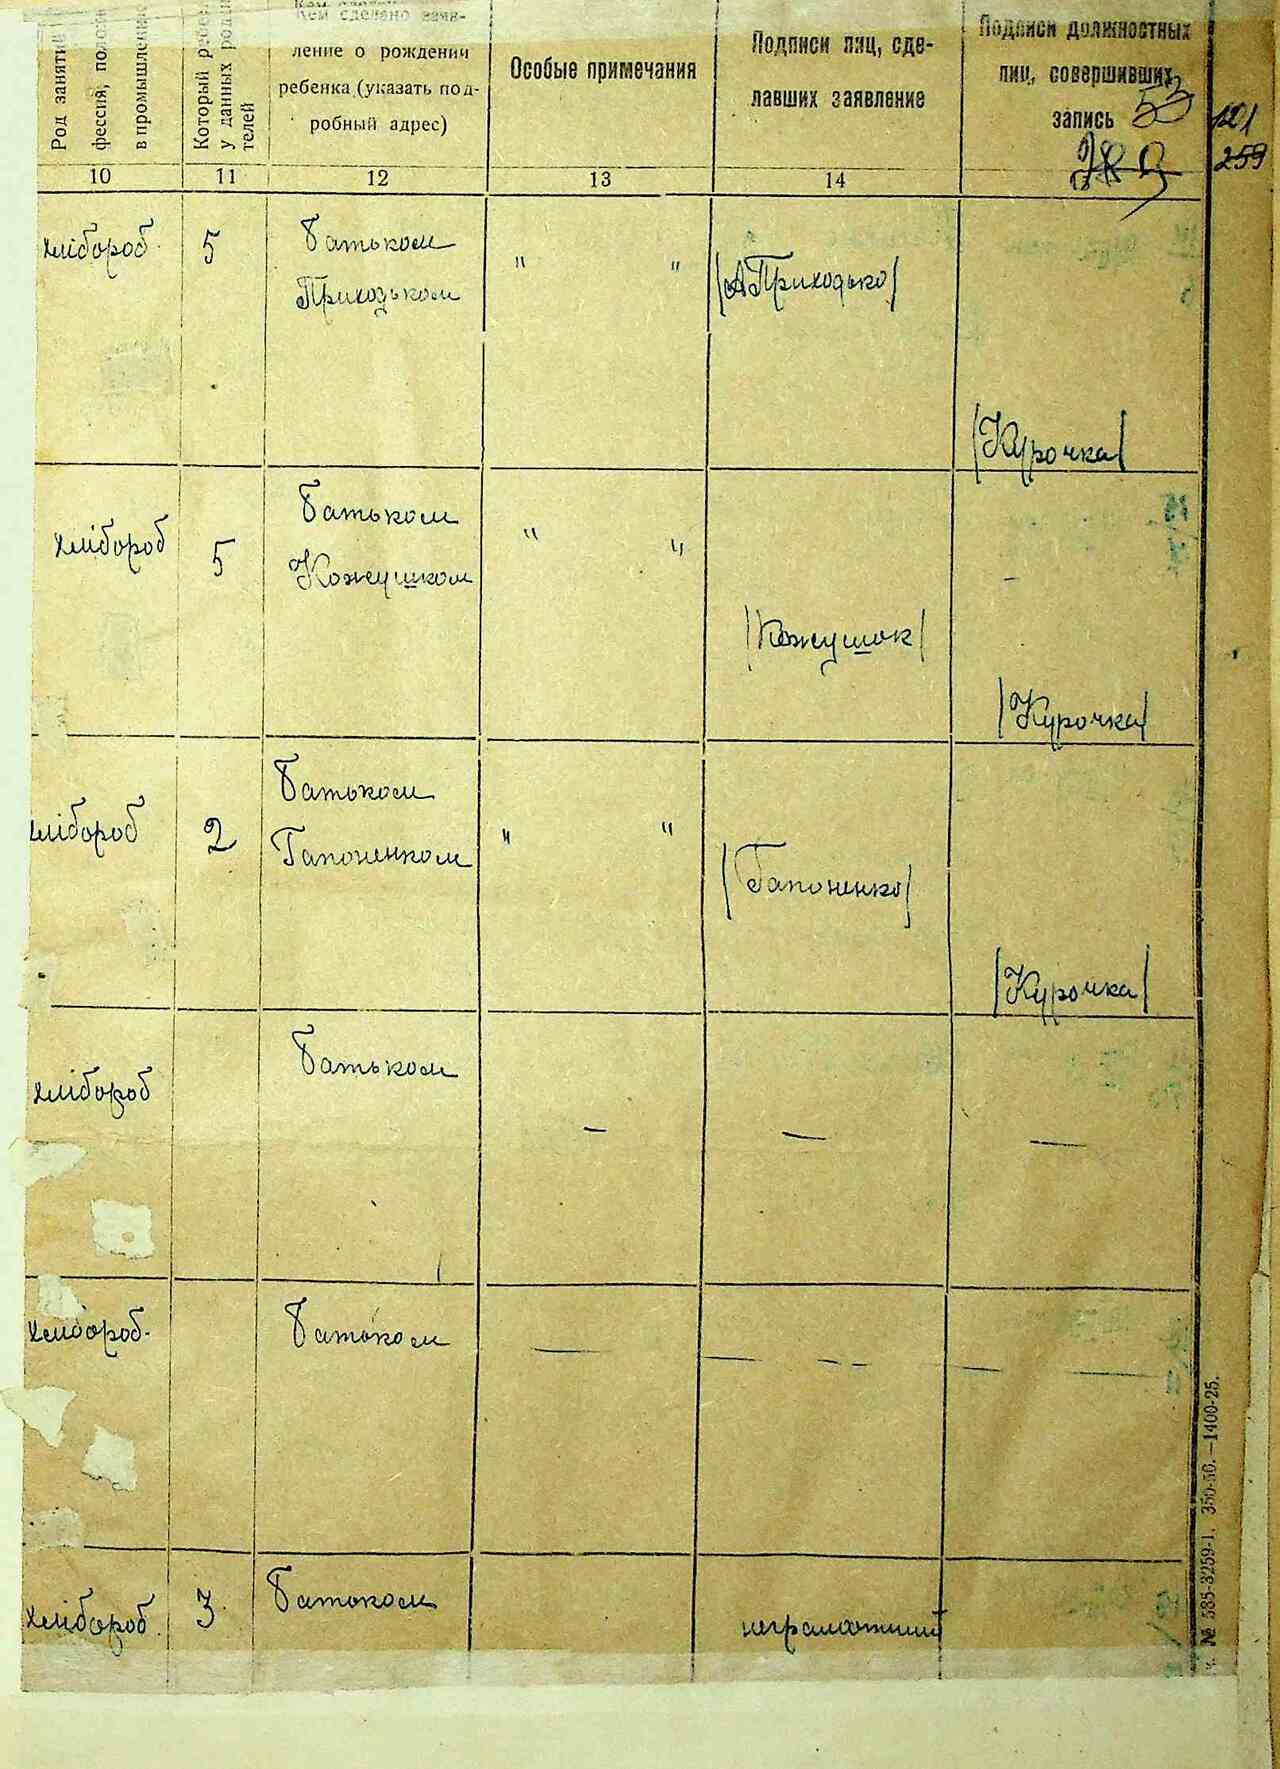 Род занятий
фессия, полож
в промышлен
Который ребен
у данных роди
телей
Кем сделано заяв-
ление о рождении
ребенка (указать под-
робный адрес)
Особые примечания
Подписи лиц, сде-
лавших заявление
Подписи должностных
лиц, совершивших
запись
53
121
259
10 11 12 13 14
хлібороб 5 Батьком " "
Приходьком /А Приходько/
/Курочка/
хлібороб 5 Батьком " "
Кожушком
/Кожушок/
/Курочка/
хлібороб 2 Батьком " "
Гапоненком /Гапоненко/
/Курочка/
хлібороб Батьком — — —
хлібороб. Батьком — — — —
хлібороб. 3 Батьком неграмотний
№ 585-3259-1. 350-50.—1400-25.